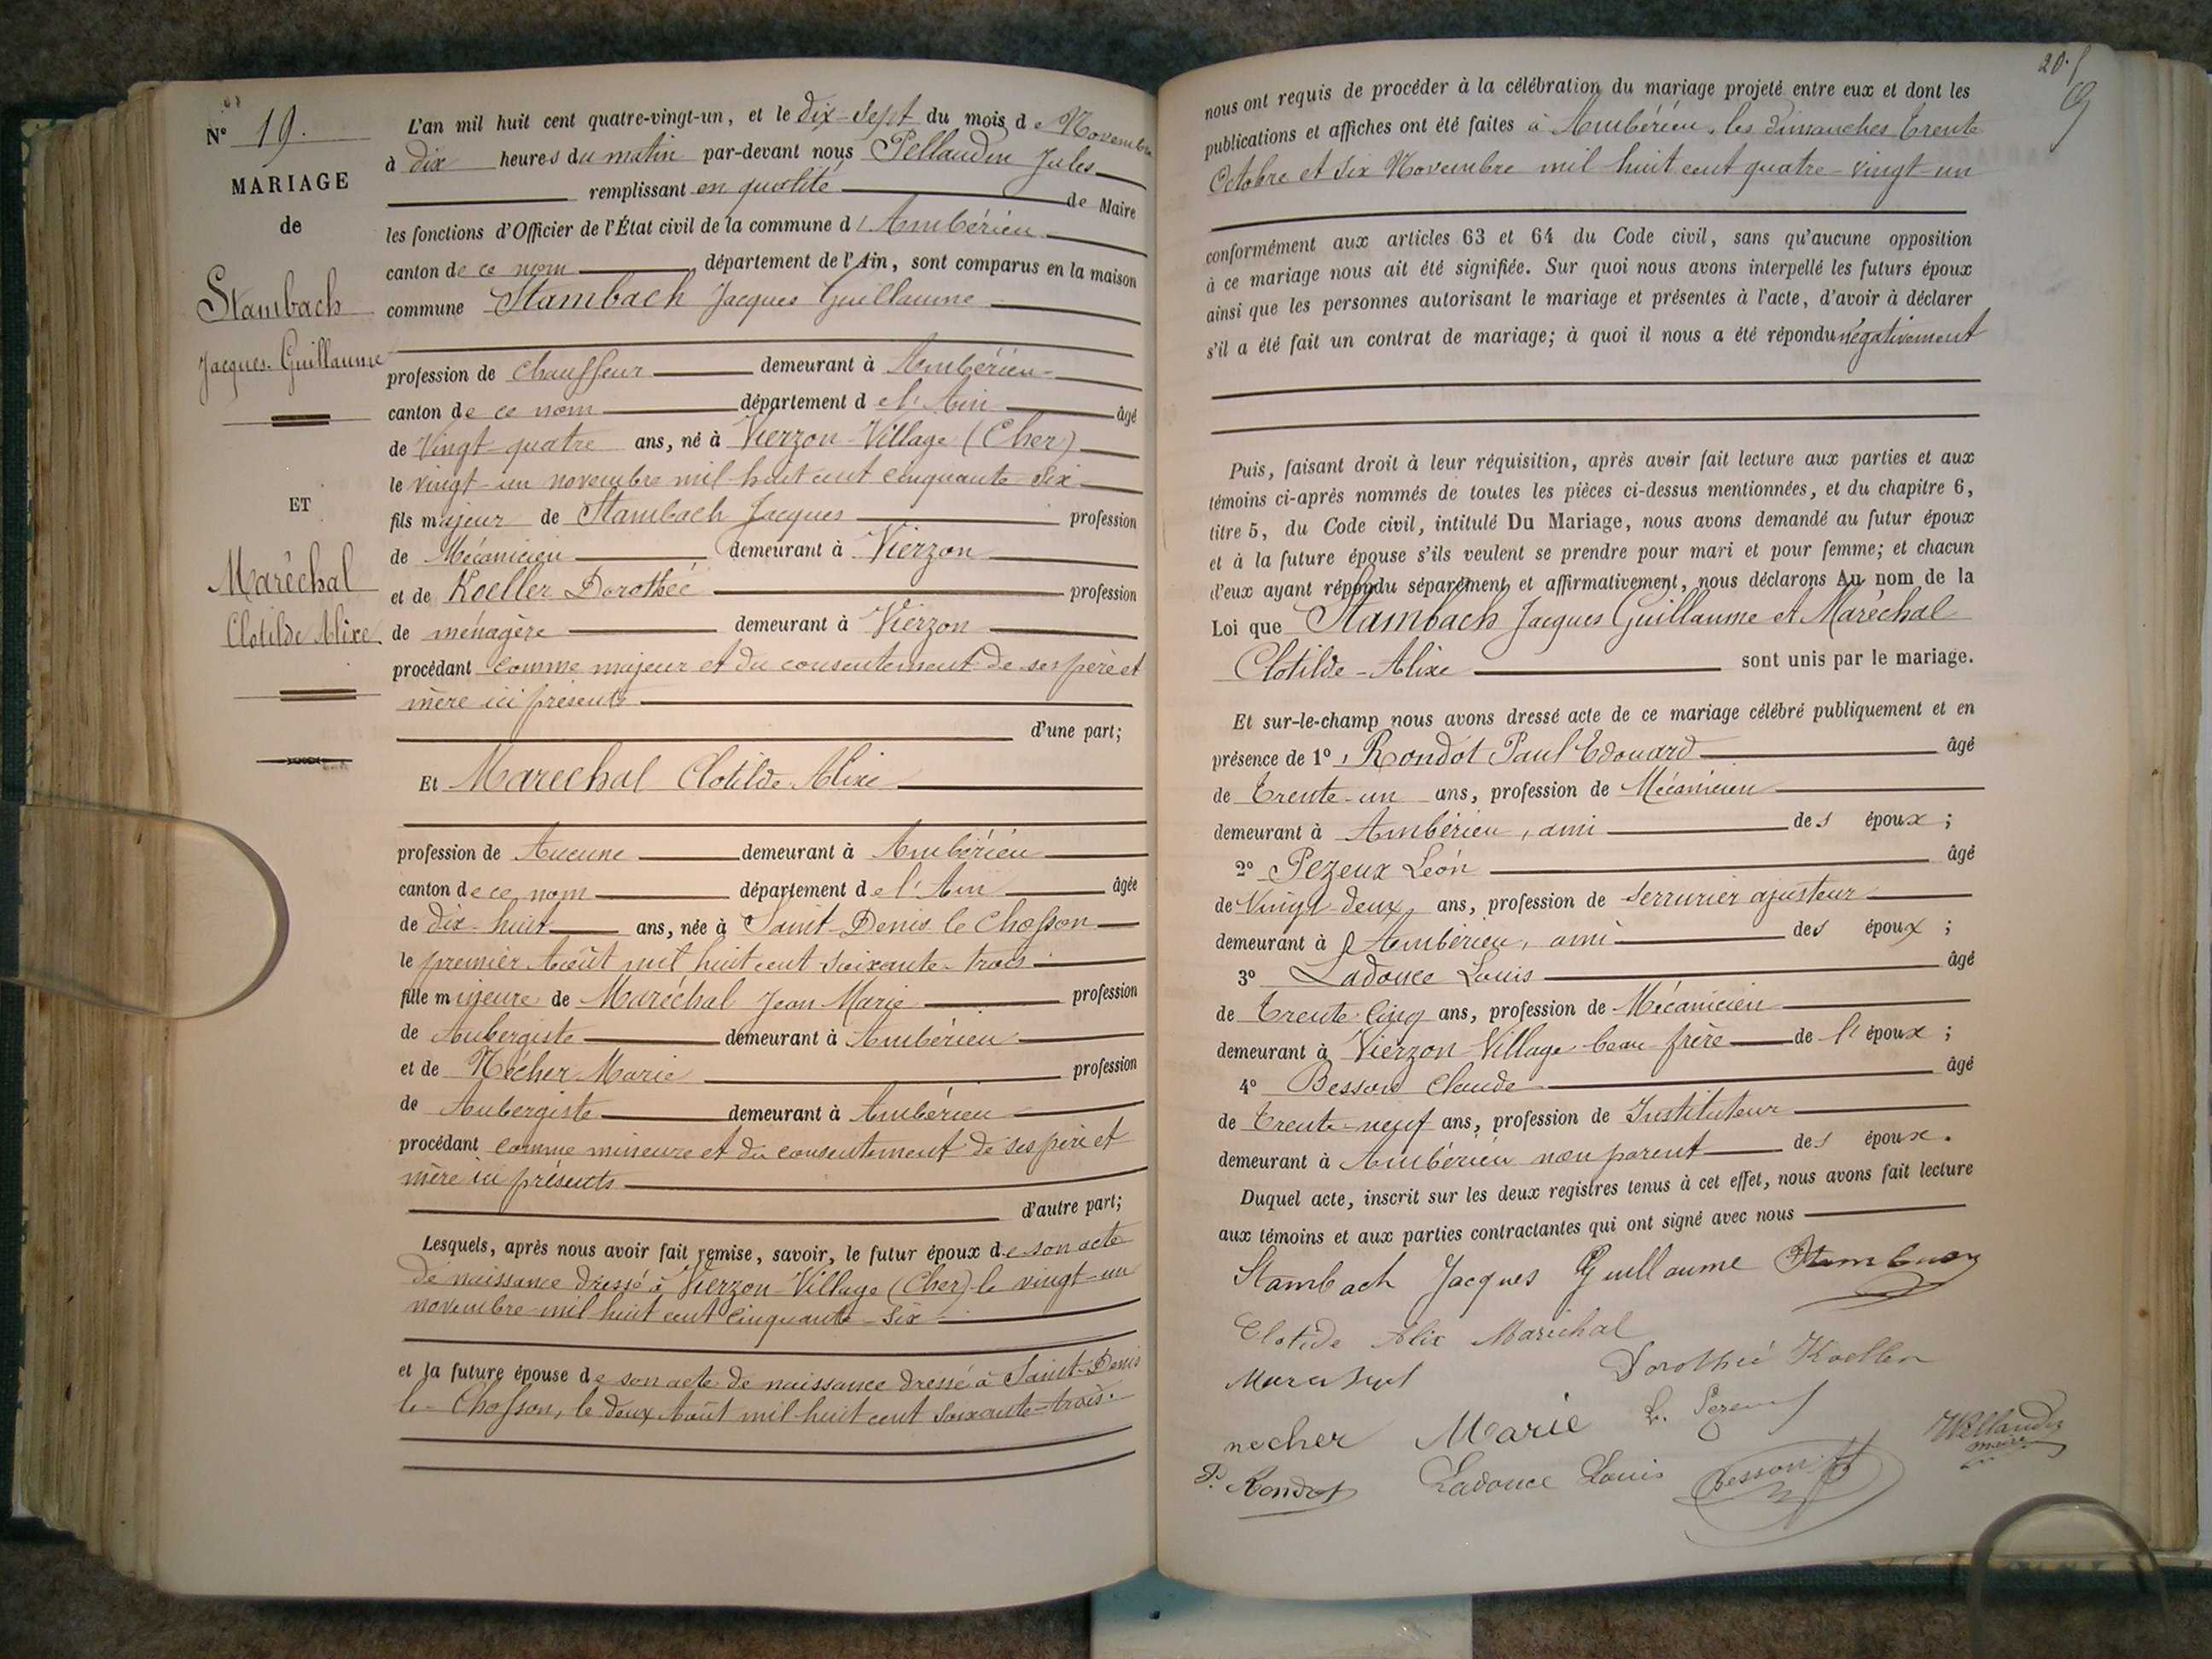 N° 19.
MARIAGE
de
Stambach
Jacques-Guillaume
ET
Maréchal
Clotilde Alixe
L'an mil huit cent quatre-vingt-un, et le dix-sept du mois de Novembre
à dix heures du matin par-devant nous Pellaudin Jules
remplissant en qualité de Maire
les fonctions d'Officier de l'État civil de la commune d'Ambérieu
canton de ce nom département de l'Ain, sont comparus en la maison
commune Stambach Jacques Guillaume
profession de Chauffeur demeurant à Ambérieu
canton de ce nom département de l'Ain âgé
de Vingt-quatre ans, né à Vierzon-Village (Cher)
le vingt-un novembre mil huit cent cinquante-six
fils majeur de Stambach Jacques profession
de Mécanicien demeurant à Vierzon
et de Koeller Dorothée profession
de ménagère demeurant à Vierzon
procédant comme majeur et du consentement de ses père et
mère ici présents
d'une part;
Et Marechal Clotilde Alixe
profession de Aucune demeurant à Ambérieu
canton de ce nom département de l'Ain âgée
de dix-huit ans, née à Saint-Denis le Chosson
le premier Août mil huit cent soixante-trois
fille mineure de Maréchal Jean Marie profession
de Aubergiste demeurant à Ambérieu
et de Nécher Marie profession
de Aubergiste demeurant à Ambérieu
procédant comme mineure et du consentement de ses père et
mère ici présents
d'autre part;
Lesquels, après nous avoir fait remise, savoir, le futur époux de son acte
de naissance dressé à Vierzon-Village (Cher) le vingt-un
novembre mil huit cent cinquante-six
et la future épouse de son acte de naissance dressé à Saint-Denis
le-Chosson, le deux Août mil huit cent soixante-trois.
20.
nous ont requis de procéder à la célébration du mariage projeté entre eux et dont les
publications et affiches ont été faites à Ambérieu, les dimanches trente
Octobre et six Novembre mil huit cent quatre-vingt-un
conformément aux articles 63 et 64 du Code civil, sans qu'aucune opposition
à ce mariage nous ait été signifiée. Sur quoi nous avons interpellé les futurs époux
ainsi que les personnes autorisant le mariage et présentes à l'acte, d'avoir à déclarer
s'il a été fait un contrat de mariage; à quoi il nous a été répondu négativement
Puis, faisant droit à leur réquisition, après avoir fait lecture aux parties et aux
témoins ci-après nommés de toutes les pièces ci-dessus mentionnées, et du chapitre 6,
titre 5, du Code civil, intitulé Du Mariage, nous avons demandé au futur époux
et à la future épouse s'ils veulent se prendre pour mari et pour femme; et chacun
d'eux ayant répondu séparément et affirmativement, nous déclarons Au nom de la
Loi que Stambach Jacques Guillaume et Maréchal
Clotilde-Alixe sont unis par le mariage.
Et sur-le-champ nous avons dressé acte de ce mariage célébré publiquement et en
présence de 1° Rondot Paul Edouard âgé
de Trente-un ans, profession de Mécanicien
demeurant à Ambérieu, ami des époux;
2° Pezeux Léon âgé
de Vingt-deux ans, profession de serrurier ajusteur
demeurant à Ambérieu, ami des époux;
3° Ladouce Louis âgé
de Trente-cinq ans, profession de Mécanicien
demeurant à Vierzon-Village beau-frère de l'époux;
4° Besson Claude âgé
de Trente-neuf ans, profession de Instituteur
demeurant à Ambérieu non parent des époux.
Duquel acte, inscrit sur les deux registres tenus à cet effet, nous avons fait lecture
aux témoins et aux parties contractantes qui ont signé avec nous
Stambach Jacques Guillaume Stambach
Clotilde Alix Maréchal
Dorothée Koeller
Marechal
necher Marie L. Pezeux
Pellaudin
maire
P. Rondot Ladouce Louis Besson